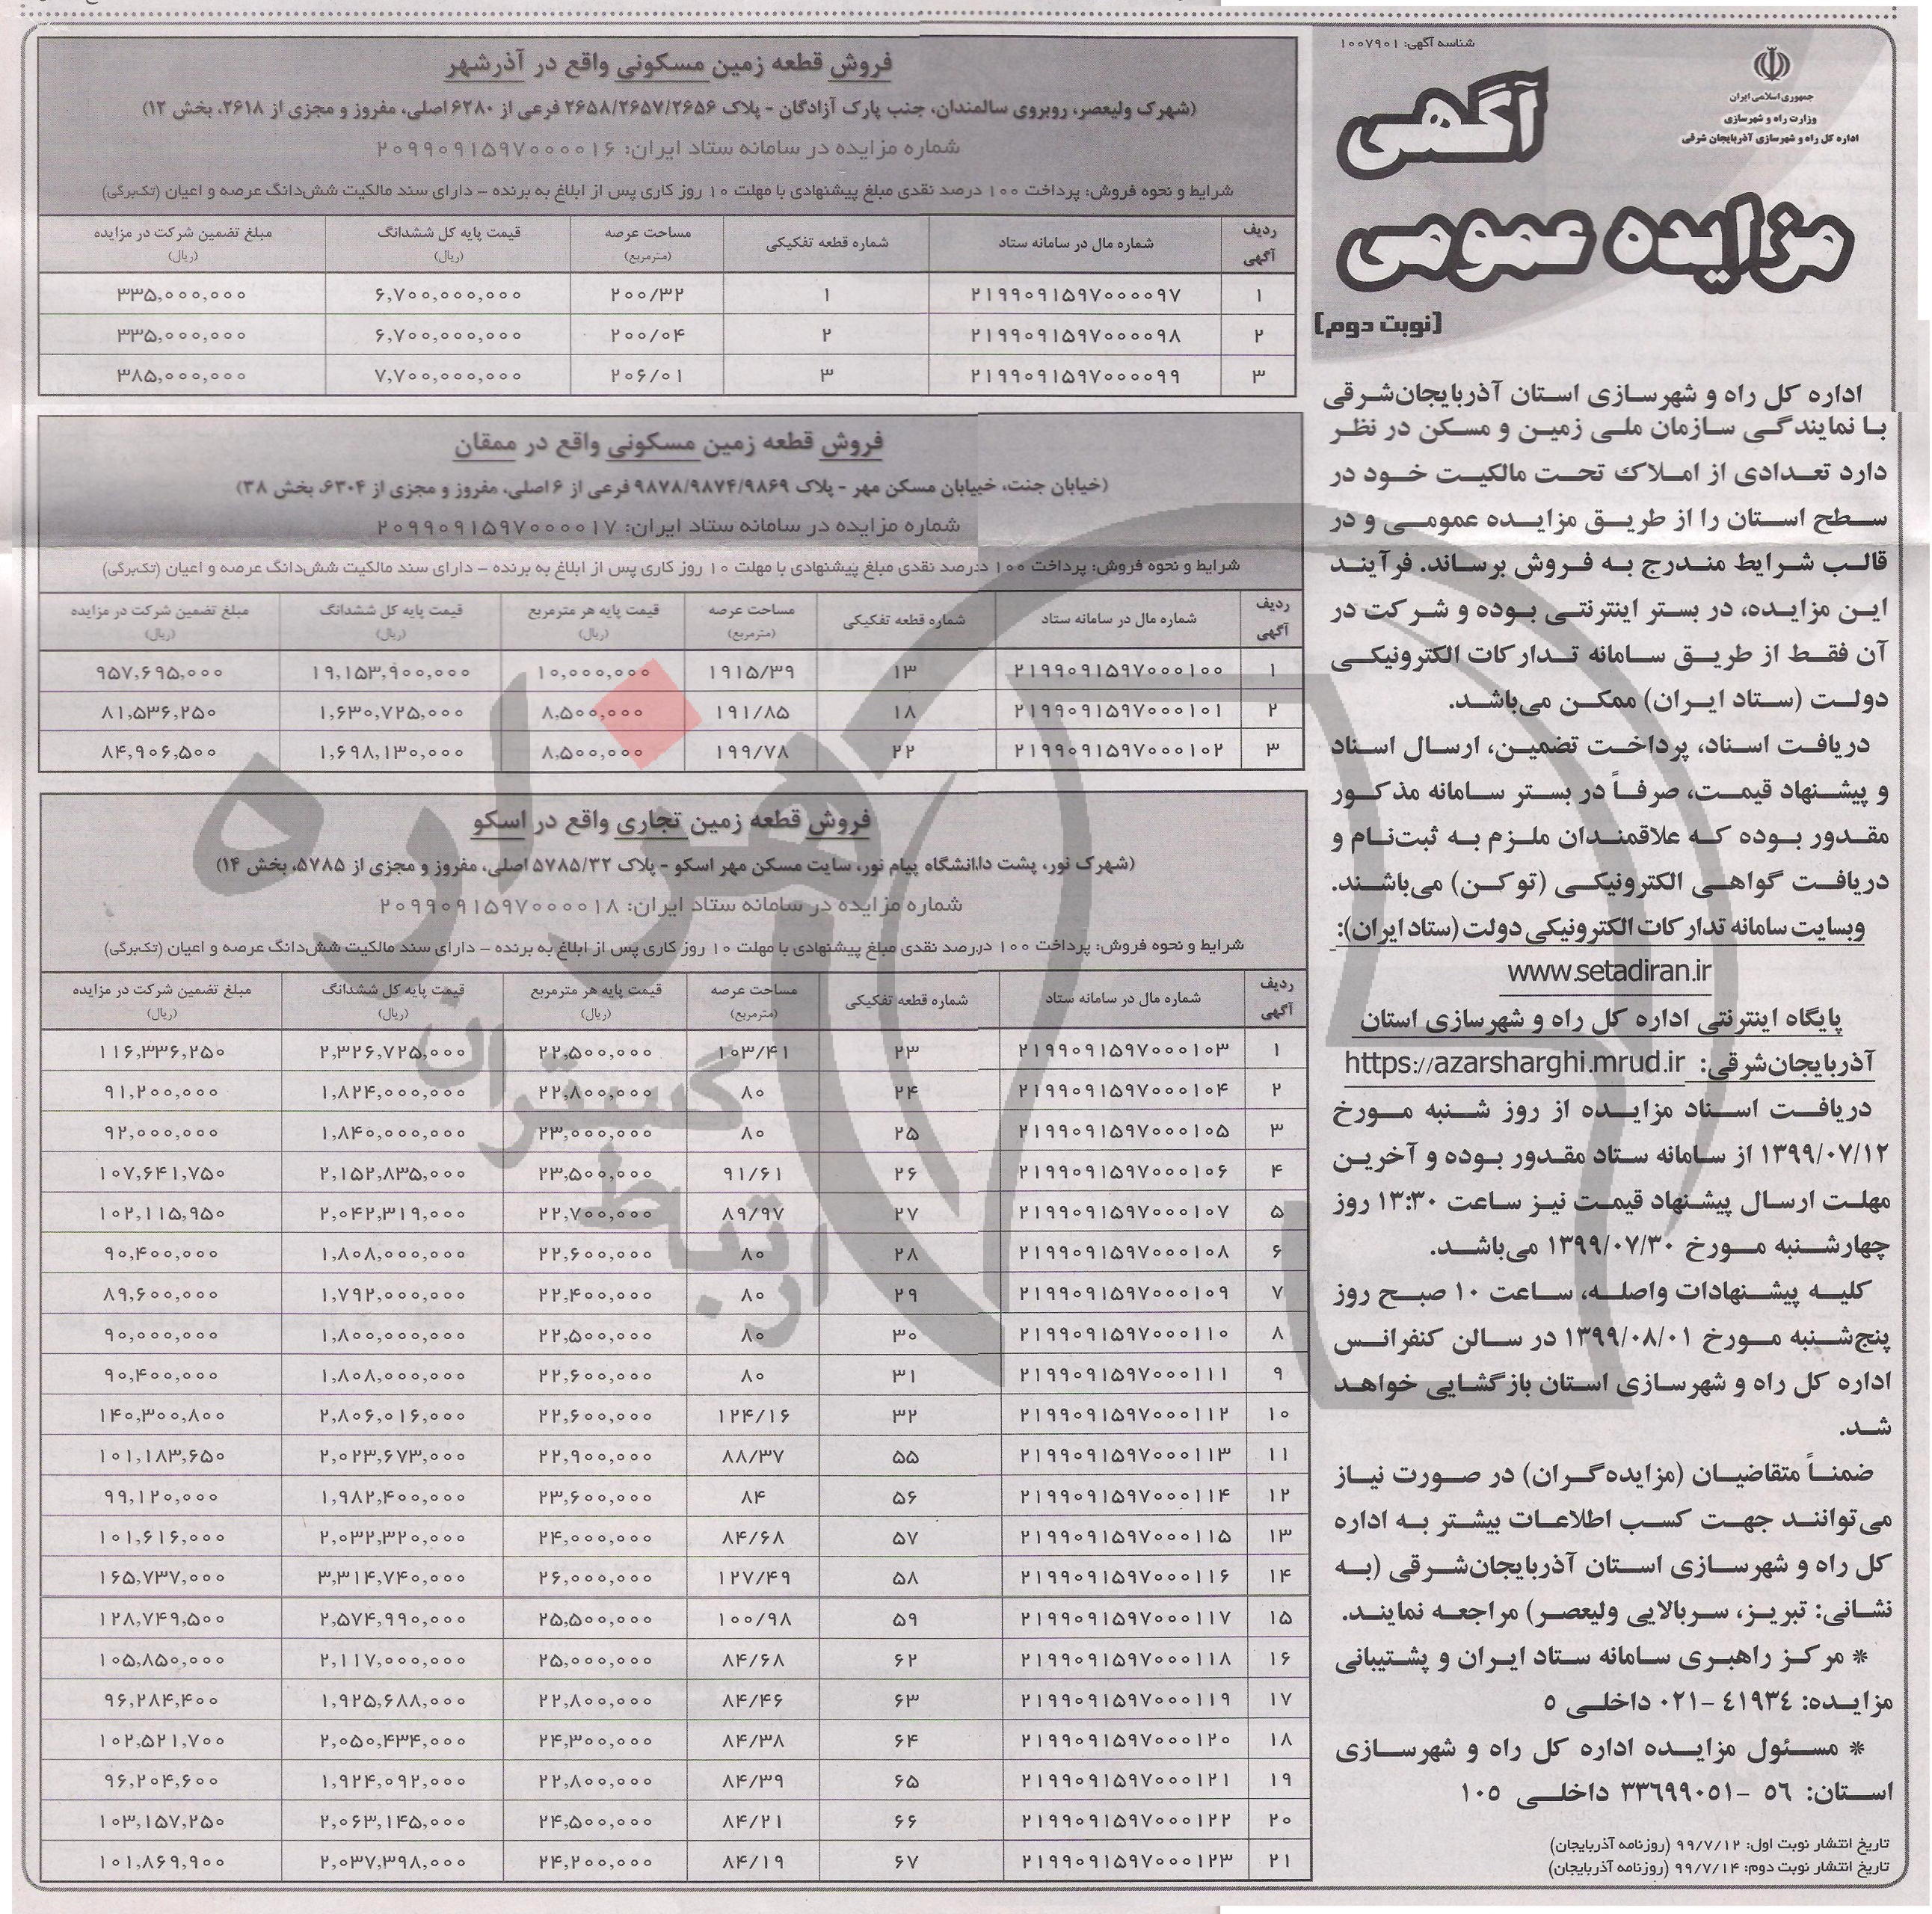 شناسه آگهی: ۱۰۰۷۹۰۱
جمهوری اسلامی ایران
وزارت راه و شهرسازی
اداره کل راه و شهرسازی آذربایجان شرقی
آگهی
مزایده عمومی
[نوبت دوم]
اداره کل راه و شهرسازی استان آذربایجان‌شرقی
با نمایندگی سازمان ملی زمین و مسکن در نظر
دارد تعدادی از املاک تحت مالکیت خود در
سطح استان را از طریق مزایده عمومی و در
قالب شرایط مندرج به فروش برساند. فرآیند
این مزایده، در بستر اینترنتی بوده و شرکت در
آن فقط از طریق سامانه تدارکات الکترونیکی
دولت (ستاد ایران) ممکن می‌باشد.
دریافت اسناد، پرداخت تضمین، ارسال اسناد
و پیشنهاد قیمت، صرفاً در بستر سامانه مذکور
مقدور بوده که علاقمندان ملزم به ثبت‌نام و
دریافت گواهی الکترونیکی (توکن) می‌باشند.
وبسایت سامانه تدارکات الکترونیکی دولت (ستاد ایران):
www.setadiran.ir
پایگاه اینترنتی اداره کل راه و شهرسازی استان
آذربایجان‌شرقی: https://azarsharghi.mrud.ir
دریافت اسناد مزایده از روز شنبه مورخ
۱۳۹۹/۰۷/۱۲ از سامانه ستاد مقدور بوده و آخرین
مهلت ارسال پیشنهاد قیمت نیز ساعت ۱۳:۳۰ روز
چهارشنبه مورخ ۱۳۹۹/۰۷/۳۰ می‌باشد.
کلیه پیشنهادات واصله، ساعت ۱۰ صبح روز
پنج‌شنبه مورخ ۱۳۹۹/۰۸/۰۱ در سالن کنفرانس
اداره کل راه و شهرسازی استان بازگشایی خواهد
شد.
ضمناً متقاضیان (مزایده‌گران) در صورت نیاز
می‌توانند جهت کسب اطلاعات بیشتر به اداره
کل راه و شهرسازی استان آذربایجان‌شرقی (به
نشانی: تبریز، سربالایی ولیعصر) مراجعه نمایند.
* مرکز راهبری سامانه ستاد ایران و پشتیبانی
مزایده: ۴۱۹۳۴ -۰۲۱ داخلی ۵
* مسئول مزایده اداره کل راه و شهرسازی
استان: ۵۶ -۳۳۶۹۹۰۵۱ داخلی ۱۰۵
تاریخ انتشار نوبت اول: ۹۹/۷/۱۲ (روزنامه آذربایجان)
تاریخ انتشار نوبت دوم: ۹۹/۷/۱۴ (روزنامه آذربایجان)
فروش قطعه زمین مسکونی واقع در آذرشهر
(شهرک ولیعصر، روبروی سالمندان، جنب پارک آزادگان - پلاک ۲۶۵۸/۲۶۵۷/۲۶۵۶ فرعی از ۶۲۸۰ اصلی، مفروز و مجزی از ۲۶۱۸، بخش ۱۲)
شماره مزایده در سامانه ستاد ایران: ۲۰۹۹۰۹۱۵۹۷۰۰۰۰۱۶
شرایط و نحوه فروش: پرداخت ۱۰۰ درصد نقدی مبلغ پیشنهادی با مهلت ۱۰ روز کاری پس از ابلاغ به برنده - دارای سند مالکیت شش‌دانگ عرصه و اعیان (تک‌برگی)
ردیف آگهی | شماره مال در سامانه ستاد | شماره قطعه تفکیکی | مساحت عرصه (مترمربع) | قیمت پایه کل ششدانگ (ریال) | مبلغ تضمین شرکت در مزایده (ریال)
۱ | ۲۱۹۹۰۹۱۵۹۷۰۰۰۰۹۷ | ۱ | ۲۰۰/۳۲ | ۶,۷۰۰,۰۰۰,۰۰۰ | ۳۳۵,۰۰۰,۰۰۰
۲ | ۲۱۹۹۰۹۱۵۹۷۰۰۰۰۹۸ | ۲ | ۲۰۰/۰۴ | ۶,۷۰۰,۰۰۰,۰۰۰ | ۳۳۵,۰۰۰,۰۰۰
۳ | ۲۱۹۹۰۹۱۵۹۷۰۰۰۰۹۹ | ۳ | ۲۰۶/۰۱ | ۷,۷۰۰,۰۰۰,۰۰۰ | ۳۸۵,۰۰۰,۰۰۰
فروش قطعه زمین مسکونی واقع در ممقان
(خیابان جنت، خیابان مسکن مهر - پلاک ۹۸۷۸/۹۸۷۴/۹۸۶۹ فرعی از ۶ اصلی، مفروز و مجزی از ۶۳۰۴، بخش ۳۸)
شماره مزایده در سامانه ستاد ایران: ۲۰۹۹۰۹۱۵۹۷۰۰۰۰۱۷
شرایط و نحوه فروش: پرداخت ۱۰۰ درصد نقدی مبلغ پیشنهادی با مهلت ۱۰ روز کاری پس از ابلاغ به برنده - دارای سند مالکیت شش‌دانگ عرصه و اعیان (تک‌برگی)
ردیف آگهی | شماره مال در سامانه ستاد | شماره قطعه تفکیکی | مساحت عرصه (مترمربع) | قیمت پایه هر مترمربع (ریال) | قیمت پایه کل ششدانگ (ریال) | مبلغ تضمین شرکت در مزایده (ریال)
۱ | ۲۱۹۹۰۹۱۵۹۷۰۰۰۱۰۰ | ۱۳ | ۱۹۱۵/۳۹ | ۱۰,۰۰۰,۰۰۰ | ۱۹,۱۵۳,۹۰۰,۰۰۰ | ۹۵۷,۶۹۵,۰۰۰
۲ | ۲۱۹۹۰۹۱۵۹۷۰۰۰۱۰۱ | ۱۸ | ۱۹۱/۸۵ | ۸,۵۰۰,۰۰۰ | ۱,۶۳۰,۷۲۵,۰۰۰ | ۸۱,۵۳۶,۲۵۰
۳ | ۲۱۹۹۰۹۱۵۹۷۰۰۰۱۰۲ | ۲۲ | ۱۹۹/۷۸ | ۸,۵۰۰,۰۰۰ | ۱,۶۹۸,۱۳۰,۰۰۰ | ۸۴,۹۰۶,۵۰۰
فروش قطعه زمین تجاری واقع در اسکو
(شهرک نور، پشت دانشگاه پیام نور، سایت مسکن مهر اسکو - پلاک ۵۷۸۵/۳۲ اصلی، مفروز و مجزی از ۵۷۸۵، بخش ۱۴)
شماره مزایده در سامانه ستاد ایران: ۲۰۹۹۰۹۱۵۹۷۰۰۰۰۱۸
شرایط و نحوه فروش: پرداخت ۱۰۰ درصد نقدی مبلغ پیشنهادی با مهلت ۱۰ روز کاری پس از ابلاغ به برنده - دارای سند مالکیت شش‌دانگ عرصه و اعیان (تک‌برگی)
ردیف آگهی | شماره مال در سامانه ستاد | شماره قطعه تفکیکی | مساحت عرصه (مترمربع) | قیمت پایه هر مترمربع (ریال) | قیمت پایه کل ششدانگ (ریال) | مبلغ تضمین شرکت در مزایده (ریال)
۱ | ۲۱۹۹۰۹۱۵۹۷۰۰۰۱۰۳ | ۲۳ | ۱۰۳/۴۱ | ۲۲,۵۰۰,۰۰۰ | ۲,۳۲۶,۷۲۵,۰۰۰ | ۱۱۶,۳۳۶,۲۵۰
۲ | ۲۱۹۹۰۹۱۵۹۷۰۰۰۱۰۴ | ۲۴ | ۸۰ | ۲۲,۸۰۰,۰۰۰ | ۱,۸۲۴,۰۰۰,۰۰۰ | ۹۱,۲۰۰,۰۰۰
۳ | ۲۱۹۹۰۹۱۵۹۷۰۰۰۱۰۵ | ۲۵ | ۸۰ | ۲۳,۰۰۰,۰۰۰ | ۱,۸۴۰,۰۰۰,۰۰۰ | ۹۲,۰۰۰,۰۰۰
۴ | ۲۱۹۹۰۹۱۵۹۷۰۰۰۱۰۶ | ۲۶ | ۹۱/۶۱ | ۲۳,۵۰۰,۰۰۰ | ۲,۱۵۲,۸۳۵,۰۰۰ | ۱۰۷,۶۴۱,۷۵۰
۵ | ۲۱۹۹۰۹۱۵۹۷۰۰۰۱۰۷ | ۲۷ | ۸۹/۹۷ | ۲۲,۷۰۰,۰۰۰ | ۲,۰۴۲,۳۱۹,۰۰۰ | ۱۰۲,۱۱۵,۹۵۰
۶ | ۲۱۹۹۰۹۱۵۹۷۰۰۰۱۰۸ | ۲۸ | ۸۰ | ۲۲,۶۰۰,۰۰۰ | ۱,۸۰۸,۰۰۰,۰۰۰ | ۹۰,۴۰۰,۰۰۰
۷ | ۲۱۹۹۰۹۱۵۹۷۰۰۰۱۰۹ | ۲۹ | ۸۰ | ۲۲,۴۰۰,۰۰۰ | ۱,۷۹۲,۰۰۰,۰۰۰ | ۸۹,۶۰۰,۰۰۰
۸ | ۲۱۹۹۰۹۱۵۹۷۰۰۰۱۱۰ | ۳۰ | ۸۰ | ۲۲,۵۰۰,۰۰۰ | ۱,۸۰۰,۰۰۰,۰۰۰ | ۹۰,۰۰۰,۰۰۰
۹ | ۲۱۹۹۰۹۱۵۹۷۰۰۰۱۱۱ | ۳۱ | ۸۰ | ۲۲,۶۰۰,۰۰۰ | ۱,۸۰۸,۰۰۰,۰۰۰ | ۹۰,۴۰۰,۰۰۰
۱۰ | ۲۱۹۹۰۹۱۵۹۷۰۰۰۱۱۲ | ۳۲ | ۱۲۴/۱۶ | ۲۲,۶۰۰,۰۰۰ | ۲,۸۰۶,۰۱۶,۰۰۰ | ۱۴۰,۳۰۰,۸۰۰
۱۱ | ۲۱۹۹۰۹۱۵۹۷۰۰۰۱۱۳ | ۵۵ | ۸۸/۳۷ | ۲۲,۹۰۰,۰۰۰ | ۲,۰۲۳,۶۷۳,۰۰۰ | ۱۰۱,۱۸۳,۶۵۰
۱۲ | ۲۱۹۹۰۹۱۵۹۷۰۰۰۱۱۴ | ۵۶ | ۸۴ | ۲۳,۶۰۰,۰۰۰ | ۱,۹۸۲,۴۰۰,۰۰۰ | ۹۹,۱۲۰,۰۰۰
۱۳ | ۲۱۹۹۰۹۱۵۹۷۰۰۰۱۱۵ | ۵۷ | ۸۴/۶۸ | ۲۴,۰۰۰,۰۰۰ | ۲,۰۳۲,۳۲۰,۰۰۰ | ۱۰۱,۶۱۶,۰۰۰
۱۴ | ۲۱۹۹۰۹۱۵۹۷۰۰۰۱۱۶ | ۵۸ | ۱۲۷/۴۹ | ۲۶,۰۰۰,۰۰۰ | ۳,۳۱۴,۷۴۰,۰۰۰ | ۱۶۵,۷۳۷,۰۰۰
۱۵ | ۲۱۹۹۰۹۱۵۹۷۰۰۰۱۱۷ | ۵۹ | ۱۰۰/۹۸ | ۲۵,۵۰۰,۰۰۰ | ۲,۵۷۴,۹۹۰,۰۰۰ | ۱۲۸,۷۴۹,۵۰۰
۱۶ | ۲۱۹۹۰۹۱۵۹۷۰۰۰۱۱۸ | ۶۲ | ۸۴/۶۸ | ۲۵,۰۰۰,۰۰۰ | ۲,۱۱۷,۰۰۰,۰۰۰ | ۱۰۵,۸۵۰,۰۰۰
۱۷ | ۲۱۹۹۰۹۱۵۹۷۰۰۰۱۱۹ | ۶۳ | ۸۴/۴۶ | ۲۲,۸۰۰,۰۰۰ | ۱,۹۲۵,۶۸۸,۰۰۰ | ۹۶,۲۸۴,۴۰۰
۱۸ | ۲۱۹۹۰۹۱۵۹۷۰۰۰۱۲۰ | ۶۴ | ۸۴/۳۸ | ۲۴,۳۰۰,۰۰۰ | ۲,۰۵۰,۴۳۴,۰۰۰ | ۱۰۲,۵۲۱,۷۰۰
۱۹ | ۲۱۹۹۰۹۱۵۹۷۰۰۰۱۲۱ | ۶۵ | ۸۴/۳۹ | ۲۲,۸۰۰,۰۰۰ | ۱,۹۲۴,۰۹۲,۰۰۰ | ۹۶,۲۰۴,۶۰۰
۲۰ | ۲۱۹۹۰۹۱۵۹۷۰۰۰۱۲۲ | ۶۶ | ۸۴/۲۱ | ۲۴,۵۰۰,۰۰۰ | ۲,۰۶۳,۱۴۵,۰۰۰ | ۱۰۳,۱۵۷,۲۵۰
۲۱ | ۲۱۹۹۰۹۱۵۹۷۰۰۰۱۲۳ | ۶۷ | ۸۴/۱۹ | ۲۴,۲۰۰,۰۰۰ | ۲,۰۳۷,۳۹۸,۰۰۰ | ۱۰۱,۸۶۹,۹۰۰
هزاره
ارتباط گستران